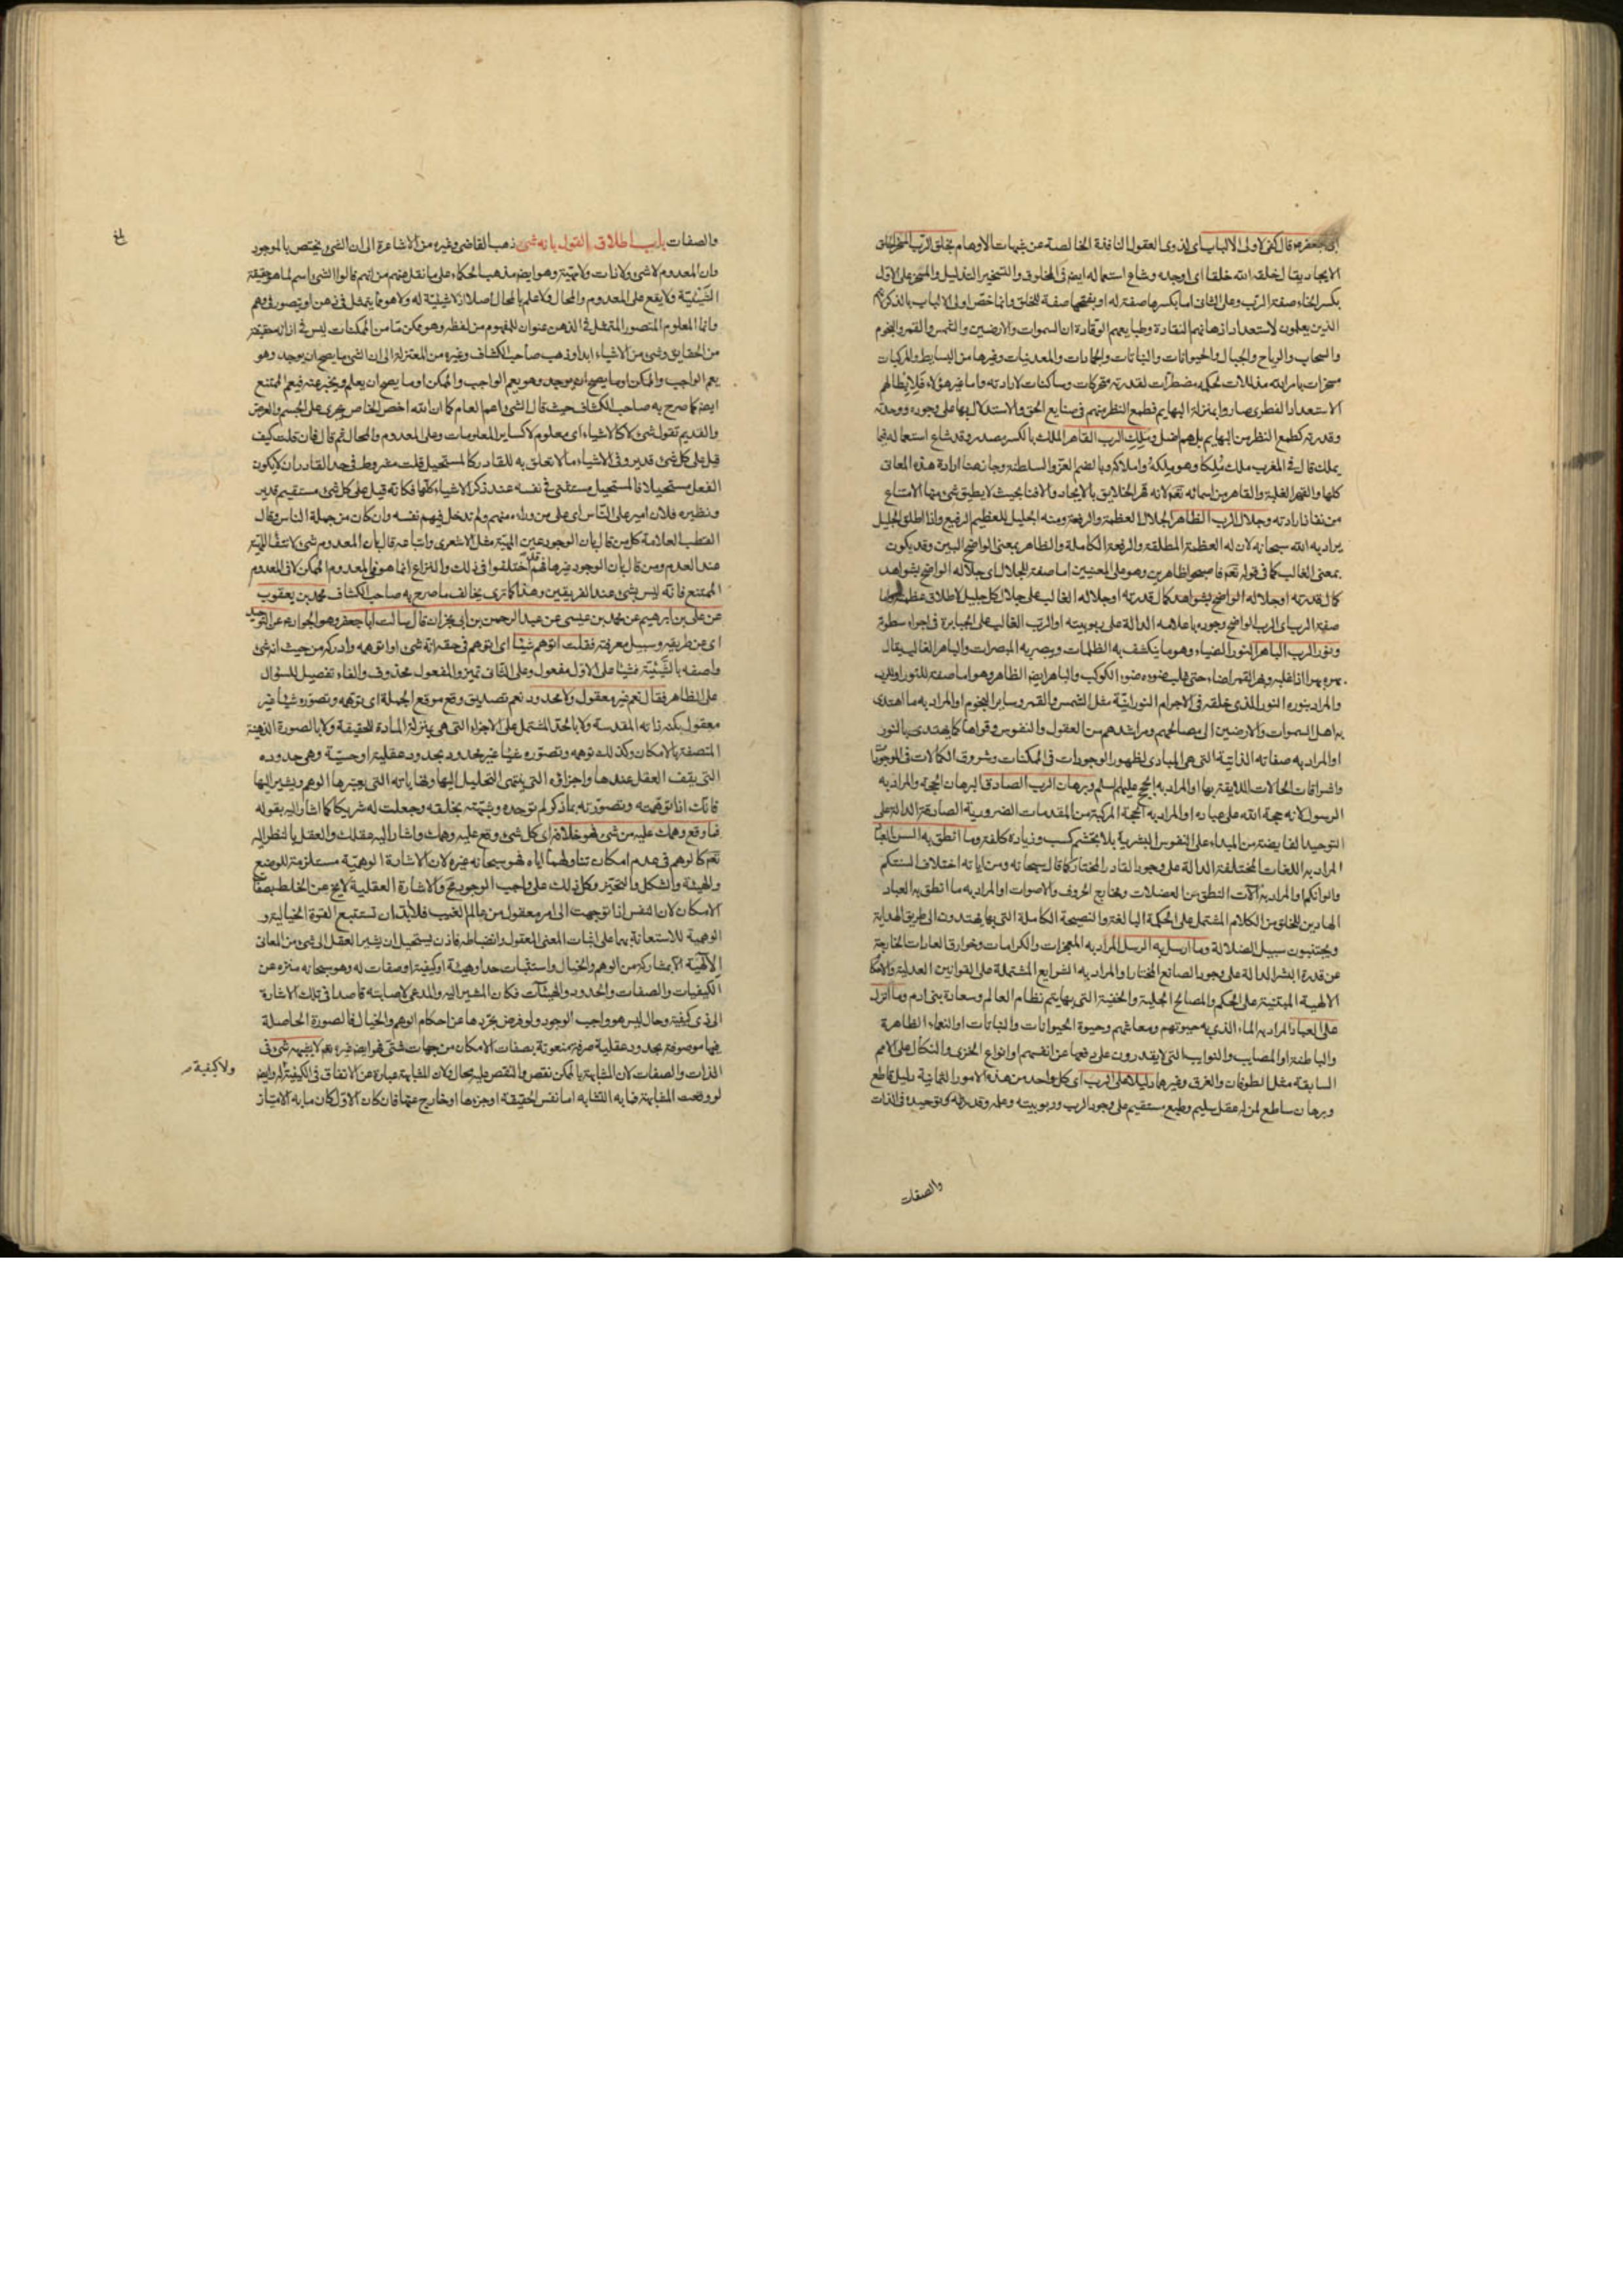 ابى جعفر ع قال كفى لاولى الالباب اى لذوى العقول النافذة الخالصة عن شبهات الاوهام بخلق الرب المسخر الخلق
الايجاد يقال خلقه الله خلقا اى اوجده وشاع استعماله ايضا فى المخلوق والتسخير التذليل والمسخر على الاول
بكسر الخاء صفة الرب وعلى الثانى اما بكسرها صفة له او بفتحها صفة للخلق وانما خص اولى الالباب بالذكر
الذين يعلمون لاستعداد اذهانهم النقادة وطبايعهم الوقادة ان السموات والارضين والشمس والقمر والنجوم
والسحاب والرياح والجبال والحيوانات والنباتات والجمادات والمعدنيات وغيرها من البسايط والمركبات
مسخرات بامر الله مذللات لحكمه مضطرات لقدرته متحركات وساكنات لارادته واما غير هؤلاء فلابطالهم
الاستعداد الفطرى صاروا بمنزلة البهايم فطمع النظر منهم فى صنايع الحق والاستدلال بها على وجوده ووحدته
وقدرته كطمع النظر من البهايم بل هم اضل وملك الرب القاهر الملك بالكسر مصدر وقد شاع استعماله فيما
يملك قال فى المغرب ملك ملكا وهو ملكه واملاكه وبالضم العز والسلطنة وجاز هنا ارادة هذه المعانى
كلها والقهر الغلبة والقاهر من اسمائه تعم لانه قهر الخلايق بالايجاد والافنا بحيث لا يطيق شئ منها الامتناع
من نفاذ ارادته وجلال الرب الظاهر الجلال العظمة والرفعة ومنه الجليل للعظيم الرفيع واذا اطلق الجليل
يراد به الله سبحانه لان له العظمة المطلقة والرفعة الكاملة والظاهر بمعنى الواضح البين وقد يكون
بمعنى الغالب كما فى قوله تعم فاصبحوا ظاهرين وهو على المعنيين اما صفة للجلال اى جلاله الواضح بشواهد
كمال قدرته او جلاله الغالب على جلال كل جليل لاطلاق عظمته
صفة الرب اى الرب الواضح وجوده باعلامه الدالة على ربوبيته او الرب الغالب على الجبابرة فى اجراء سطوة
ونور الرب الباهر النور الضياء وهو ما ينكشف به الظلمات ويبصر به المبصرات والباهر الغالب يقال
بهره بهرا اذا غلبه وبهر القمر اضاء حتى غلب ضوءه ضوء الكوكب والباهر ايضا الظاهر وهو اما صفة للنور او للرب
والمراد بنوره النور الذى خلقه فى الاجرام النورانية مثل الشمس والقمر وساير النجوم او المراد به ما اهتدى
به اهل السموات والارضين الى مصالحهم ومراشدهم من العقول والنفوس وقواها كما يهتدى بالنور
او المراد به صفاته الذاتية التى هى المبادى لظهور الوجودات فى الممكنات وشروق الكمالات فى الموجودات
واشراقات الحالات اللايقة بها او المراد به الحجج عليهم السلم وبرهان الرب الصادق البرهان الحجة والمراد به
الرسول لانه حجة الله على عباده او المراد به الحجة المركبة من المقدمات الضرورية الصادقة الدالة على
التوحيد الفايضة من المبداء على النفوس البشرية بلا تجشم كسب وزيادة كلفة وما انطق به السن العباد
المراد به اللغات المختلفة الدالة على وجود القادر المختار كما قال سبحانه ومن اياته اختلاف السنتكم
والوانكم او المراد به آلات النطق من العضلات ومخارج الحروف والاصوات او المراد به ما انطق به العباد
الهادين للخلق من الكلام المشتمل على الحكمة البالغة والنصيحة الكاملة التى بها يهتدون الى طريق الهداية
ويجتنبون سبيل الضلالة وما ارسل به الرسل المراد به المعجزات والكرامات وخوارق العادات الخارجة
عن قدرة البشر الدالة على وجود الصانع المختار او المراد به الشرايع المشتملة على القوانين العدلية والاحكام
الالهية المبتنية على الحكم والمصالح الجلية والخفية التى بها يتم نظام العالم وسعادة بنى ادم وما انزل
على العباد المراد به الماء الذى به حيوتهم ومعاشهم وحيوة الحيوانات والنباتات او النعماء الظاهرة
والباطنة او المصايب والنوايب التى لا يقدرون على دفعها عن انفسهم او انواع الخزى والنكال على الامم
السابقة مثل الطوفان والغرق وغيرها دليلا على الرب اى كل واحد من هذه الامور الثمانية دليل قاطع
وبرهان ساطع لمن له عقل سليم وطبع مستقيم على وجود الرب وربوبيته وعلمه وقدرته وتوحيده فى الذات
والصفات
والصفات باب اطلاق القول بانه شئ ذهب القاضى وغيره من الاشاعرة الى ان الشئ يختص بالموجود
وان المعدوم لا شئ ولا ذات ولا مهية وهو ايضا مذهب الحكماء على ما نقل عنهم من انهم قالوا الشئ اسم لما هو حقيقة
الشيئية ولا يقع على المعدوم والمحال ولا علم بالمحال اصلا اذ لا شيئية له ولا هو مما يتمثل فى ذهن او يتصور فى وهم
وانما المعلوم المتصور المتمثل فى الذهن عنوان للمفهوم من لفظه وهو ممكن ما من الممكنات ليس فى ازائه حقيقة
من الحقايق وشئ من الاشياء ابدا وذهب صاحب الكشاف وغيره من المعتزلة الى ان الشئ ما يصح ان يوجد وهو
يعم الواجب والممكن او ما يصح ان يعلم ويخبر عنه فيعم الممتنع
ايضا كما صرح به صاحب الكشاف حيث قال الشئ اعم العام كما ان الله اخص الخاص يجرى على الجسم والعرض
والقديم تقول شئ لا كالاشياء اى معلوم لا كساير المعلومات وعلى المعدوم والمحال ثم قال فان قلت كيف
قيل على كل شئ قدير وفى الاشياء ما لا تعلق به للقادر كالمستحيل قلت مشروط فى حد القادر ان لا يكون
الفعل مستحيلا فالمستحيل مستثنى فى نفسه عند ذكر الاشياء كلها فكانه قيل على كل شئ مستقيم قدير
ونظيره فلان امير على الناس اى على من وراءه منهم ولم تدخل فيهم نفسه وان كان من جملة الناس وقال
القطب العلامة كل من قال بان الوجود عين المهية مثل الاشعرى واتباعه قال بان المعدوم ليس شئ لانتفاء المهية
عند العدم ومن قال بان الوجود غيرها فهم قد اختلفوا فى ذلك والنزاع انما هو فى المعدوم الممكن لا فى المعدوم
الممتنع فانه ليس بشئ عند الفريقين وهذا كما ترى يخالف ما صرح به صاحب الكشاف محمد بن يعقوب
عن على بن ابرهيم عن محمد بن عيسى عن عبد الرحمن بن ابى نجران قال سالت ابا جعفر وهو الجواد ع عن التوحيد
اى عن طريقه وسبيل معرفته فقلت اتوهم شيئا اى اتوهم فى حقه انه شئ او اتوهمه وادركه من حيث انه شئ
واصفه بالشيئية فشيئا على الاول مفعول وعلى الثانى تميز والمفعول محذوف والفاء تفصيل للسؤال
على الظاهر فقال نعم غير معقول ولا محدود نعم تصديق وقع موقع الجملة اى توهمه وتصوره شيئا غير
معقول بكنه ذاته المقدسة ولا بالحد المشتمل على الاجزاء التى هى بمنزلة المادة للحقيقة ولا بالصورة الذهنية
المتصفة بالامكان وكذلك توهمه وتصوره شيئا غير محدود بحدود عقلية او حسية وهى حدوده
التى يقف العقل عندها واجزاؤه التى ينتهى التحليل اليها ونهاياته التى يعتبرها الوهم ويشير اليها
فانك اذا توهمته وتصورته بما ذكر لم توحده وشبهته بخلقه وجعلت له شريكا كما اشار اليه بقوله
فما وقع وهمك عليه من شئ فهو خلافه اى كل شئ وقع عليه وهمك واشار اليه عقلك والعقل بالنظر اليه
تعم كالوهم فى عدم امكان تناولهما اياه فهو سبحانه غيره لان الاشارة الوهمية مستلزمة للوضع
والهيئة والشكل والتحيز وكل ذلك على واجب الوجود مح والاشارة العقلية لا تخ عن الخلط بصفات
الامكان لان النفس اذا توجهت الى امر معقول من عالم الغيب فلابد ان تستتبع القوة الخيالية و
الوهمية للاستعانة بهما على اثبات المعنى المعقول وانضباطه فاذن يستحيل ان يشير العقل الى شئ من المعانى
الالهية الا بمشاركة من الوهم والخيال واستثبات حد او هيئة او كيفية او صفات له وهو سبحانه منزه عن
الكيفيات والصفات والحدود والهيئات فكان المشير اليه والمدعى لاصابته قاصدا فى تلك الاشارة
الى ذى كيفية وحال ليس هو واجب الوجود ولو فرض تجردها عن احكام الوهم والخيال فالصورة الحاصلة
فيها موصوفة بحدود عقلية صرفة منعوتة بصفات الامكان من جهات شتى فهو ايضا غيره تعم لا يشبهه شئ فى
الذات والصفات لان المشابهة بالممكن نقص والنقص عليه محال ولان المشابهة عبارة عن الاتفاق فى الكيفية وايضا
ولا كيفية له
لو وقعت المشابهة فما به التشابه اما نفس الحقيقة او جزءها او خارج عنها فان كان الاول كان ما به الامتياز